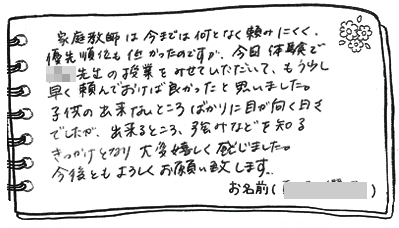 家庭教師は今までは何となく頼みにくく、
優先順位も低かったのですが、今日体験で
先生の授業をみせていただいて、もう少し
早く頼んでおけば良かったと思いました。
子供の出来ないところばかりに目が向く日々
でしたが、出来るところ、強みなどを知る
きっかけとなり大変嬉しく感じました。
今後ともよろしくお願い致します。
お名前( )